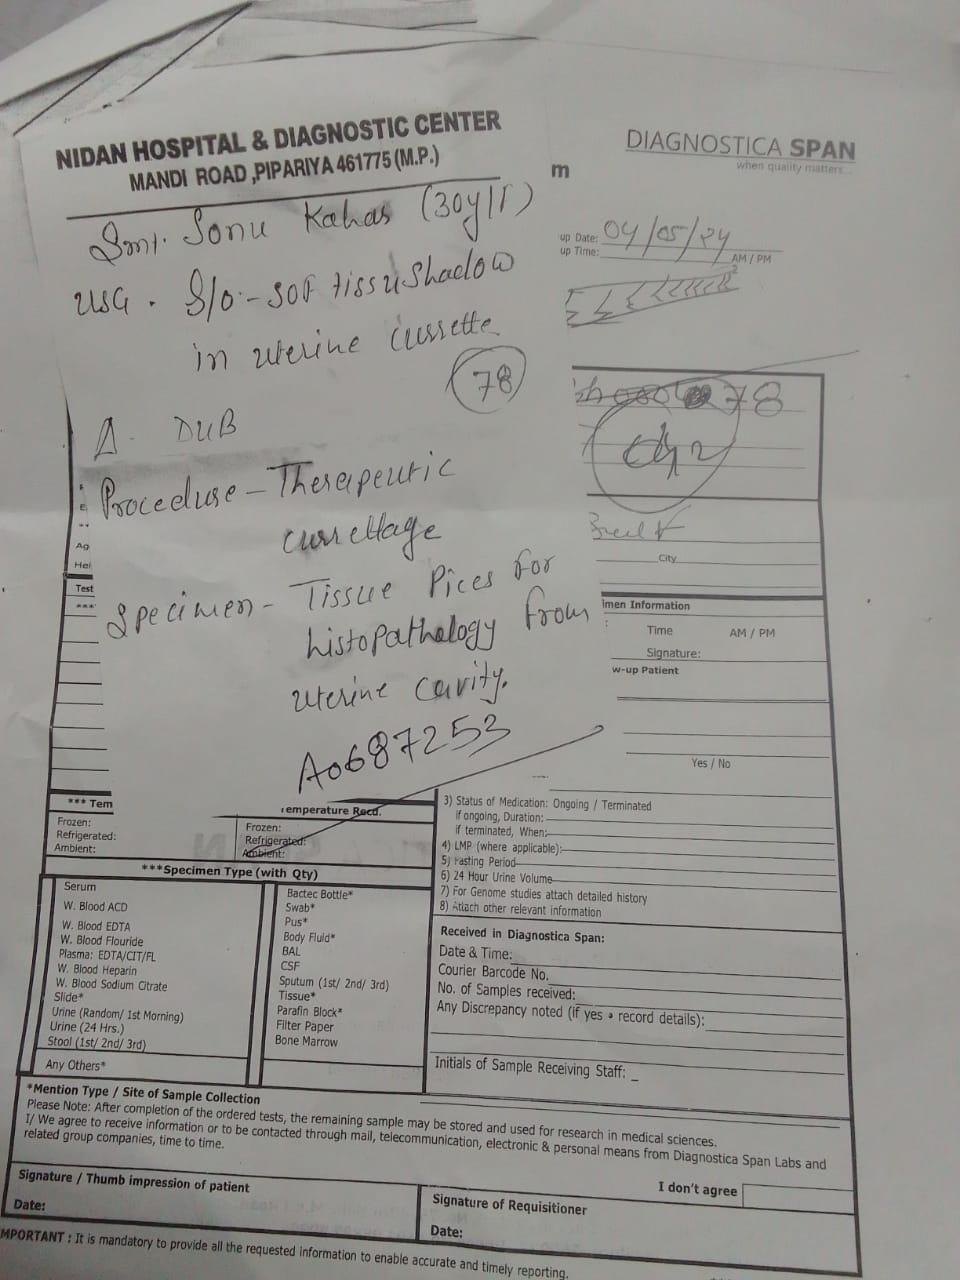 NIDAN HOSPITAL & DIAGNOSTIC CENTER
MANDI ROAD ,PIPARIYA 461775 (M.P.)
Smt. Sonu Kahas (30y/F)
USG . S/o:- sof tissu Shadow
in uterine
78
Δ. DUB
Procedure - Therapeutic
currettage
Specimen - Tissue Pices for
histopathology from
uterine cavity.
A0687253
m
DIAGNOSTICA SPAN
when quality matters...
up Date: 04/05/24
up Time: AM / PM
78
City
Ag
Hei
Test
***
imen Information
Time AM / PM
Signature:
w-up Patient
Yes / No
*** Tem
Frozen:
Refrigerated:
Ambient:
emperature Recd.
Frozen:
Refrigerated:
Ambient:
***Specimen Type (with Qty)
Serum
W. Blood ACD
W. Blood EDTA
W. Blood Flouride
Plasma: EDTA/CIT/FL
W. Blood Heparin
W. Blood Sodium Citrate
Slide*
Urine (Random/ 1st Morning)
Urine (24 Hrs.)
Stool (1st/ 2nd/ 3rd)
Any Others*
Bactec Bottle*
Swab*
Pus*
Body Fluid*
BAL
CSF
Sputum (1st/ 2nd/ 3rd)
Tissue*
Parafin Block*
Filter Paper
Bone Marrow
3) Status of Medication: Ongoing / Terminated
if ongoing, Duration:
if terminated, When:
4) LMP (where applicable):
5) Fasting Period
6) 24 Hour Urine Volume
7) For Genome studies attach detailed history
8) Attach other relevant information
Received in Diagnostica Span:
Date & Time:
Courier Barcode No.
No. of Samples received:
Any Discrepancy noted (if yes • record details):
Initials of Sample Receiving Staff:
*Mention Type / Site of Sample Collection
Please Note: After completion of the ordered tests, the remaining sample may be stored and used for research in medical sciences.
I/ We agree to receive information or to be contacted through mail, telecommunication, electronic & personal means from Diagnostica Span Labs and
related group companies, time to time.
I don't agree
Signature / Thumb impression of patient
Date:
Signature of Requisitioner
Date:
MPORTANT : It is mandatory to provide all the requested information to enable accurate and timely reporting.